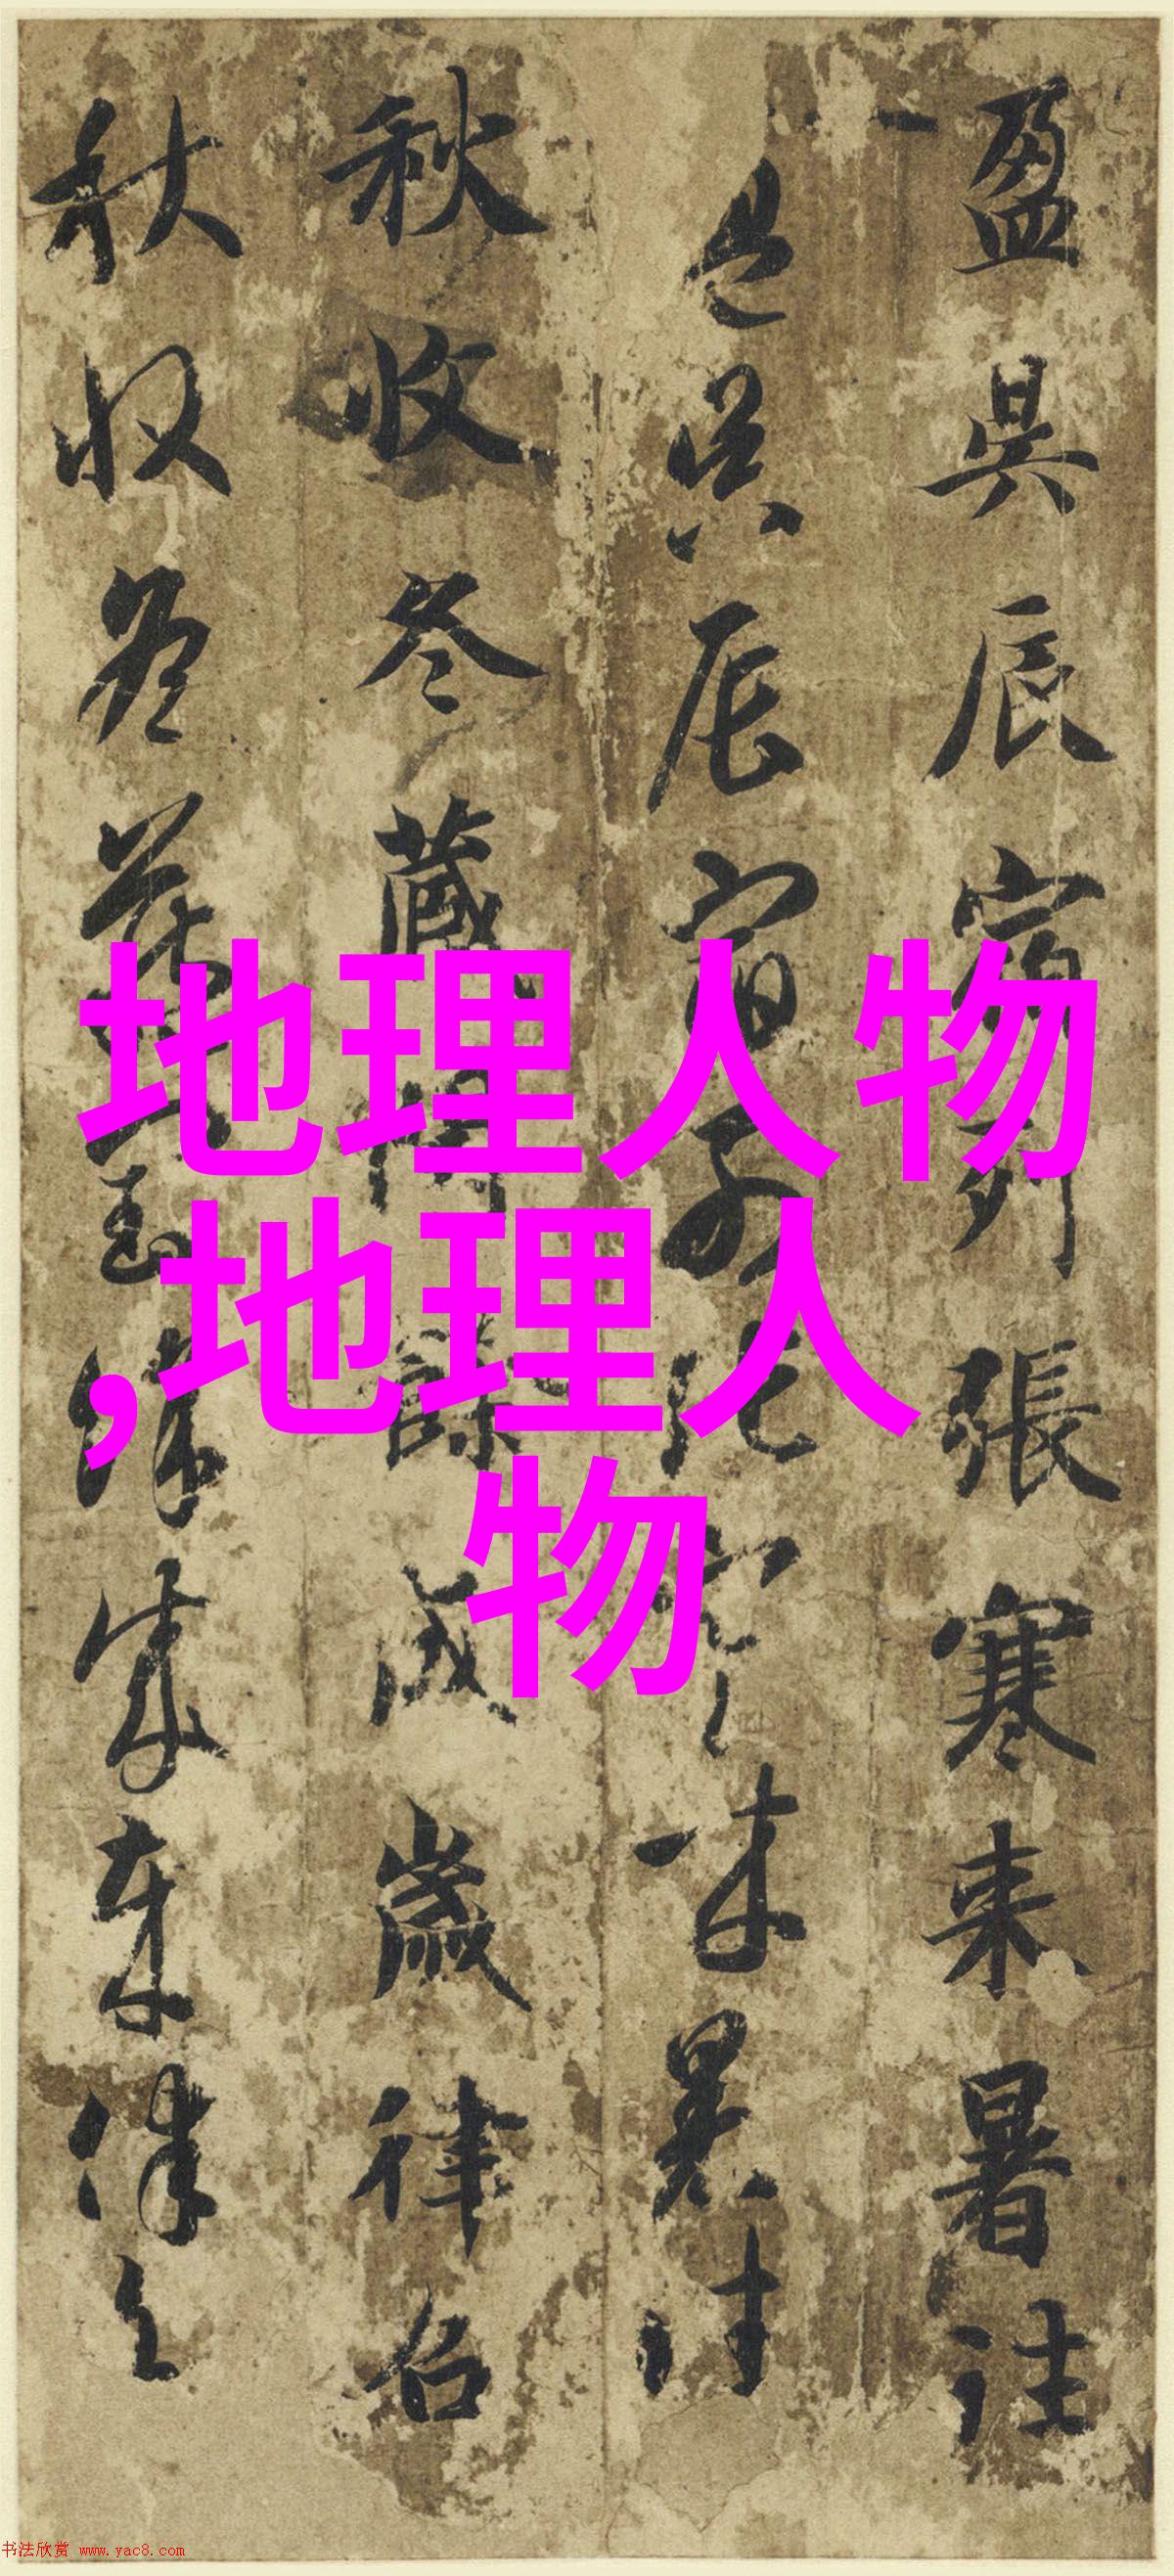 盈昃辰宿列張寒来暑往
盈昃辰宿列張寒来暑往
秋收冬藏閏餘成歲律召
秋收冬藏餘成歲律召
地理人物
,地理人
物
书法欣赏 www.yac8.com